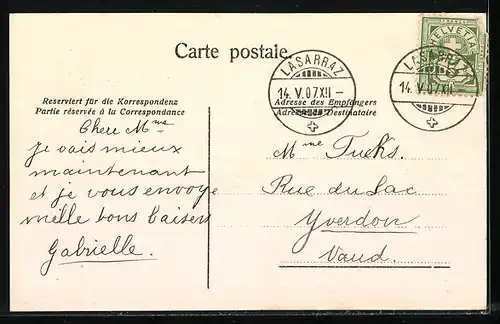 Carte postale.
HELVETIA
LASARRAZ
14. V. 07. XII –
LASARRAZ
14. V. 07. XII –
Reserviert für die Korrespondenz
Partie réservée à la Correspondance
Adresse des Empfängers
Adresse du Destinataire
Chere Mme
Je vais mieux
maintenant
et je vous envoye
mille bons baisers
Gabrielle.
Mme Fucks.
Rue du Lac
Yverdon
Vaud.